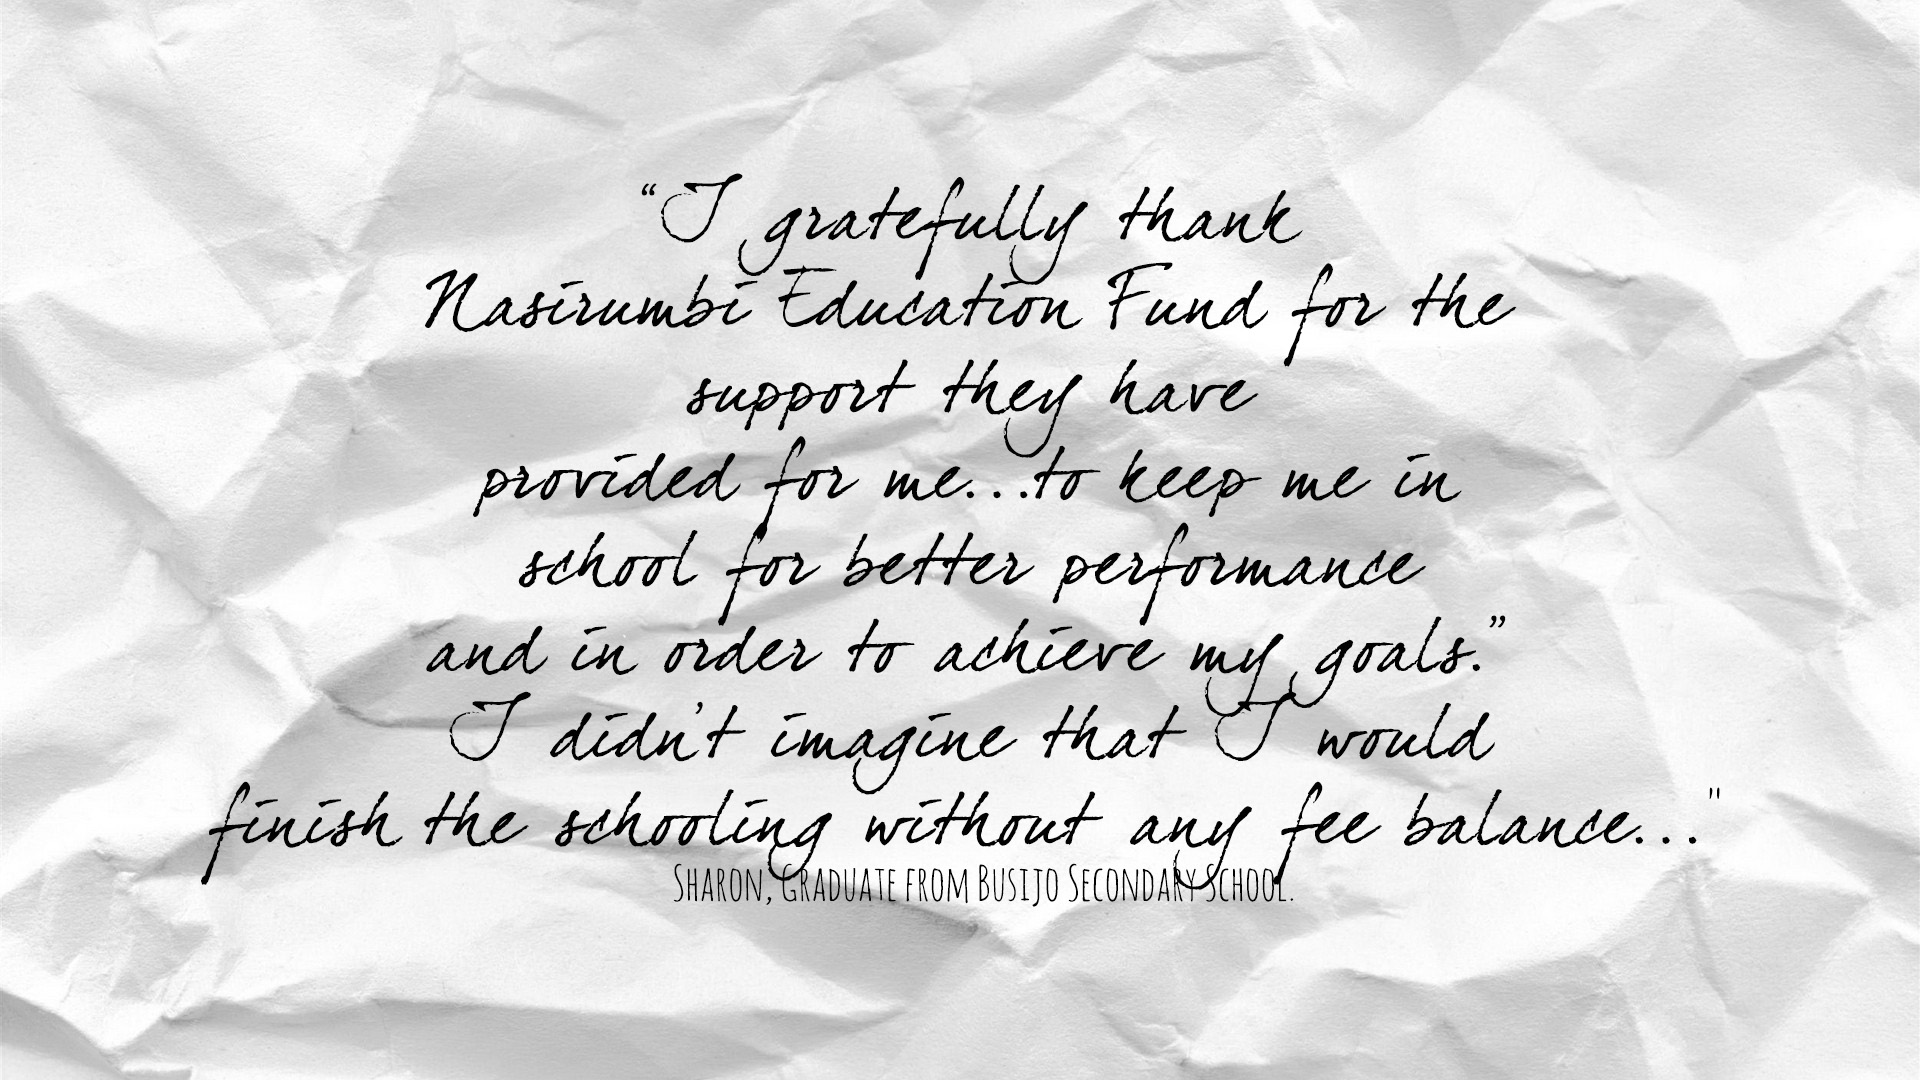 “I gratefully thank
Nasirumbi Education Fund for the
support they have
provided for me...to keep me in
school for better performance
and in order to achieve my goals.”
I didn’t imagine that I would
finish the schooling without any fee balance..."
Sharon, Graduate from Busijo Secondary School.